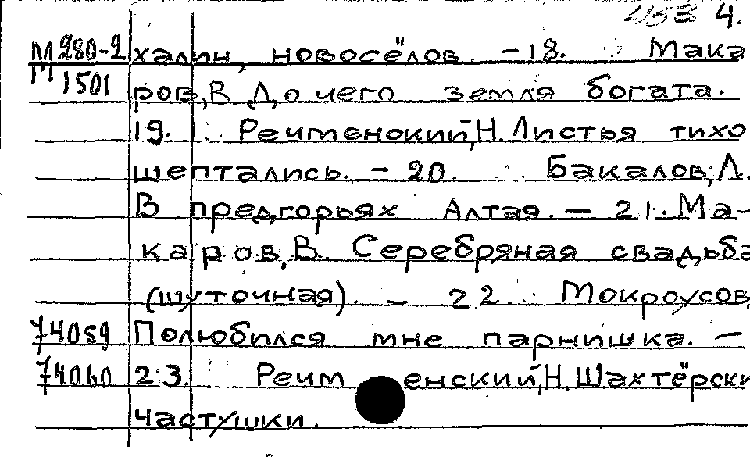 4.
М280-2 халин, новосёлов. - 18. Мака
М1501 ров, В До чего земля богата.
19. Речменский, Н. Листья тихо
шептались. - 20. Бакалов, Л.
В предгорьях Алтая. - 21. Ма-
каров, В. Серебряная свадьба
(шуточная). - 22. Мокроусов,
74059 Полюбился мне парнишка. -
74060 23. Речменский, Н. Шахтёрски
частушки.